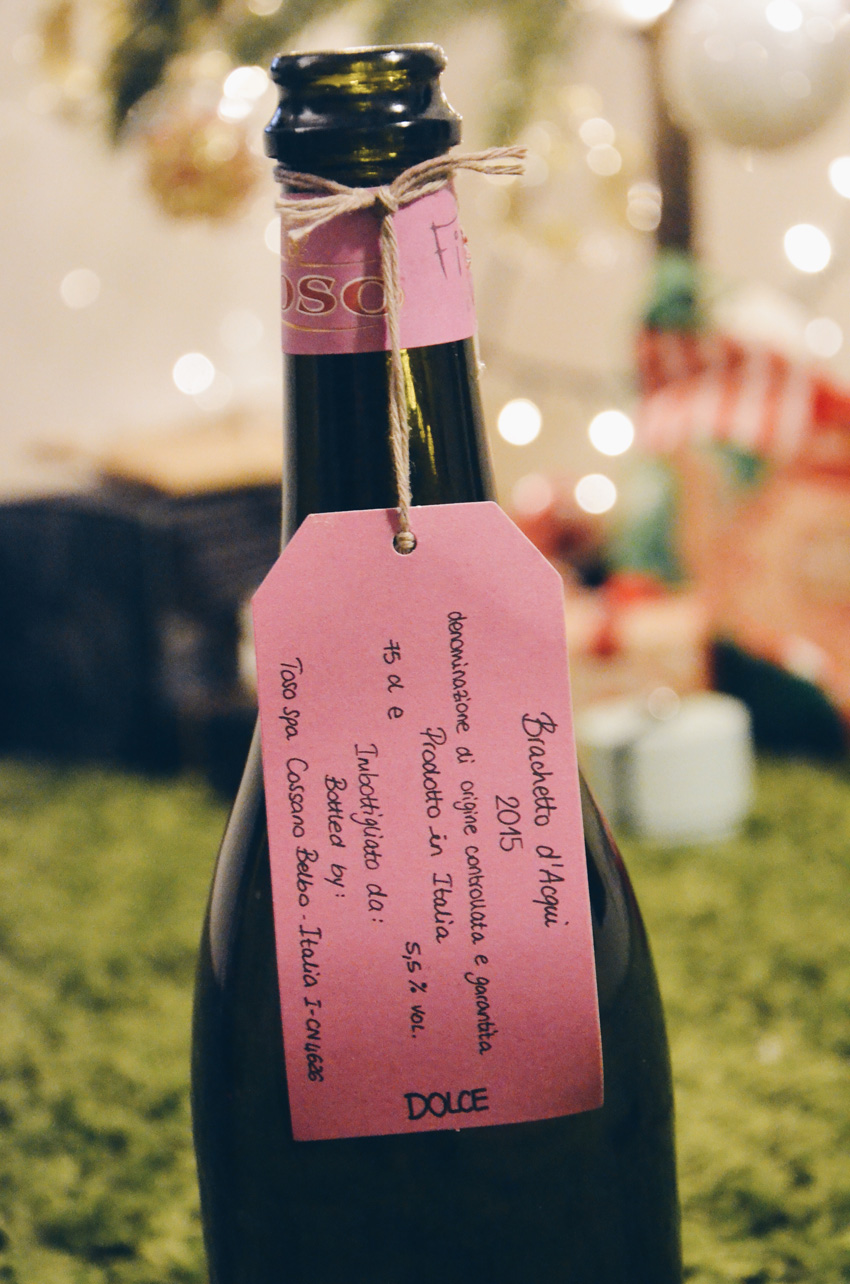 OSO
Fi
Brachetto d'Acqui
2015
denominazione di origine controllata e garantita
Prodotto in Italia
75 cl e 5,5 % vol.
Imbottigliato da:
Bottled by:
Toso spa Cossano Belbo - Italia I-CN4626
DOLCE